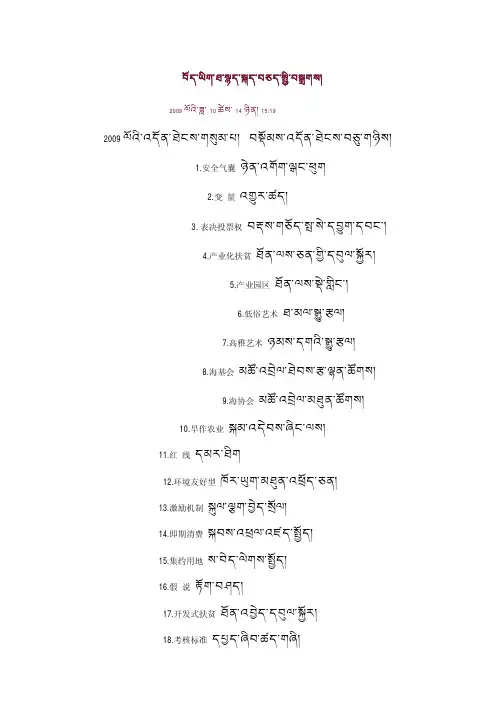 བོད་ཡིག་ཐ་སྙད་སྐད་བཅད་སྤྱི་བསྒྲགས།
2009 ལོའི་ཟླ་ 10 ཚེས་ 14 ཉིན། 15:19
2009 ལོའི་འདོན་ཐེངས་གསུམ་པ། བསྡོམས་འདོན་ཐེངས་བཅུ་གཉིས།
1.安全气囊 ཉེན་འགོག་ལྒང་ཕུག
2.变 量 འགྱུར་ཚད།
3.表决投票权 བརྡས་གཅོད་སྤ་སེ་དབྱུག་དབང་།
4.产业化扶贫 ཐོན་ལས་ཅན་གྱི་དབུལ་སྐྱོར།
5.产业园区 ཐོན་ལས་སྡེ་གླིང་།
6.低俗艺术 ཐ་མལ་སྒྱུ་རྩལ།
7.高雅艺术 ཉམས་དགའི་སྒྱུ་རྩལ།
8.海基会 མཚོ་འབྲེལ་ཐེབས་རྩ་ལྷན་ཚོགས།
9.海协会 མཚོ་འབྲེལ་མཐུན་ཚོགས།
10.旱作农业 སྐམ་འདེབས་ཞིང་ལས།
11.红 线 དམར་ཐིག
12.环境友好里 ཁོར་ཡུག་མཐུན་འཕྲོད་ཅན།
13.激励机制 སྐུལ་ལྕག་བྱེད་སྲོལ།
14.即期消费 སྐབས་འཕྲལ་འཛད་སྤྱོད།
15.集约用地 ས་བེད་ལེགས་སྤྱོད།
16.假 说 རྟོག་བཤད།
17.开发式扶贫 ཐོན་འབྱེད་དབུལ་སྐྱོར།
18.考核标准 དཔྱད་ཞིབ་ཚད་གཞི།